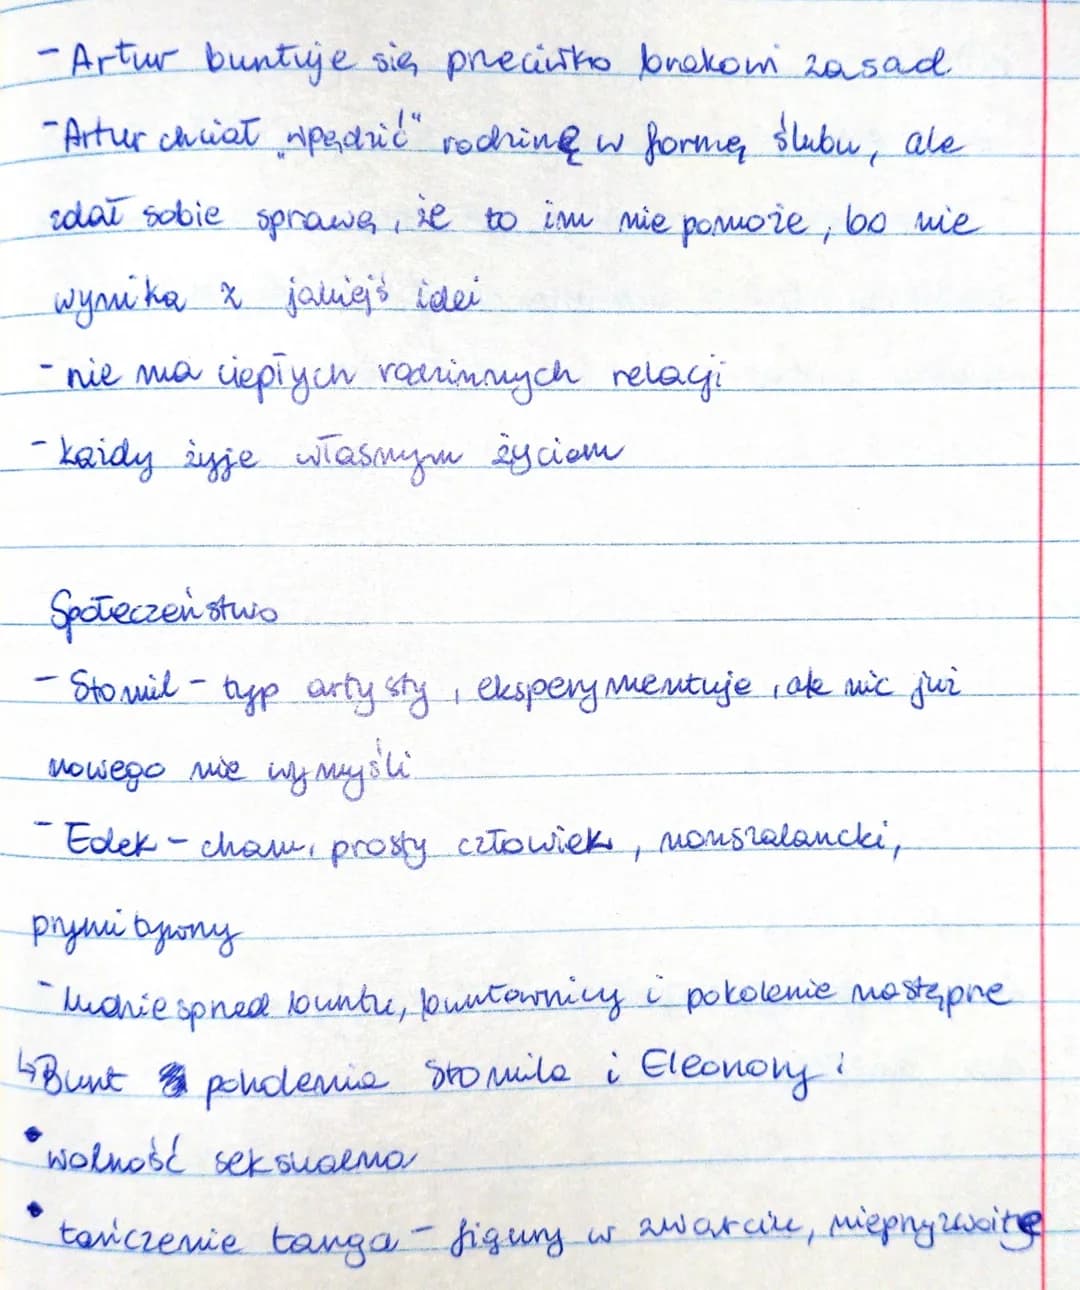 - Artur buntuje się przeciwko brakowi zasad
- Artur chciał „wpędzić" rodzinę w formę ślubu, ale
zdał sobie sprawę, że to im nie pomoże, bo nie
wynika z jakiejś idei
- nie ma ciepłych rodzinnych relacji
- każdy żyje własnym życiem
Społeczeństwo
- Stomil - typ artysty, eksperymentuje, ale nic już
nowego nie wymyśli
- Edek - cham, prosty człowiek, nonszalancki,
prymitywny
- ludzie sprzed buntu, buntownicy i pokolenie następne
↳ Bunt pokolenia Stomila i Eleonory:
• wolność seksualna
• tańczenie tanga - figury w zwarciu, nieprzyzwoite